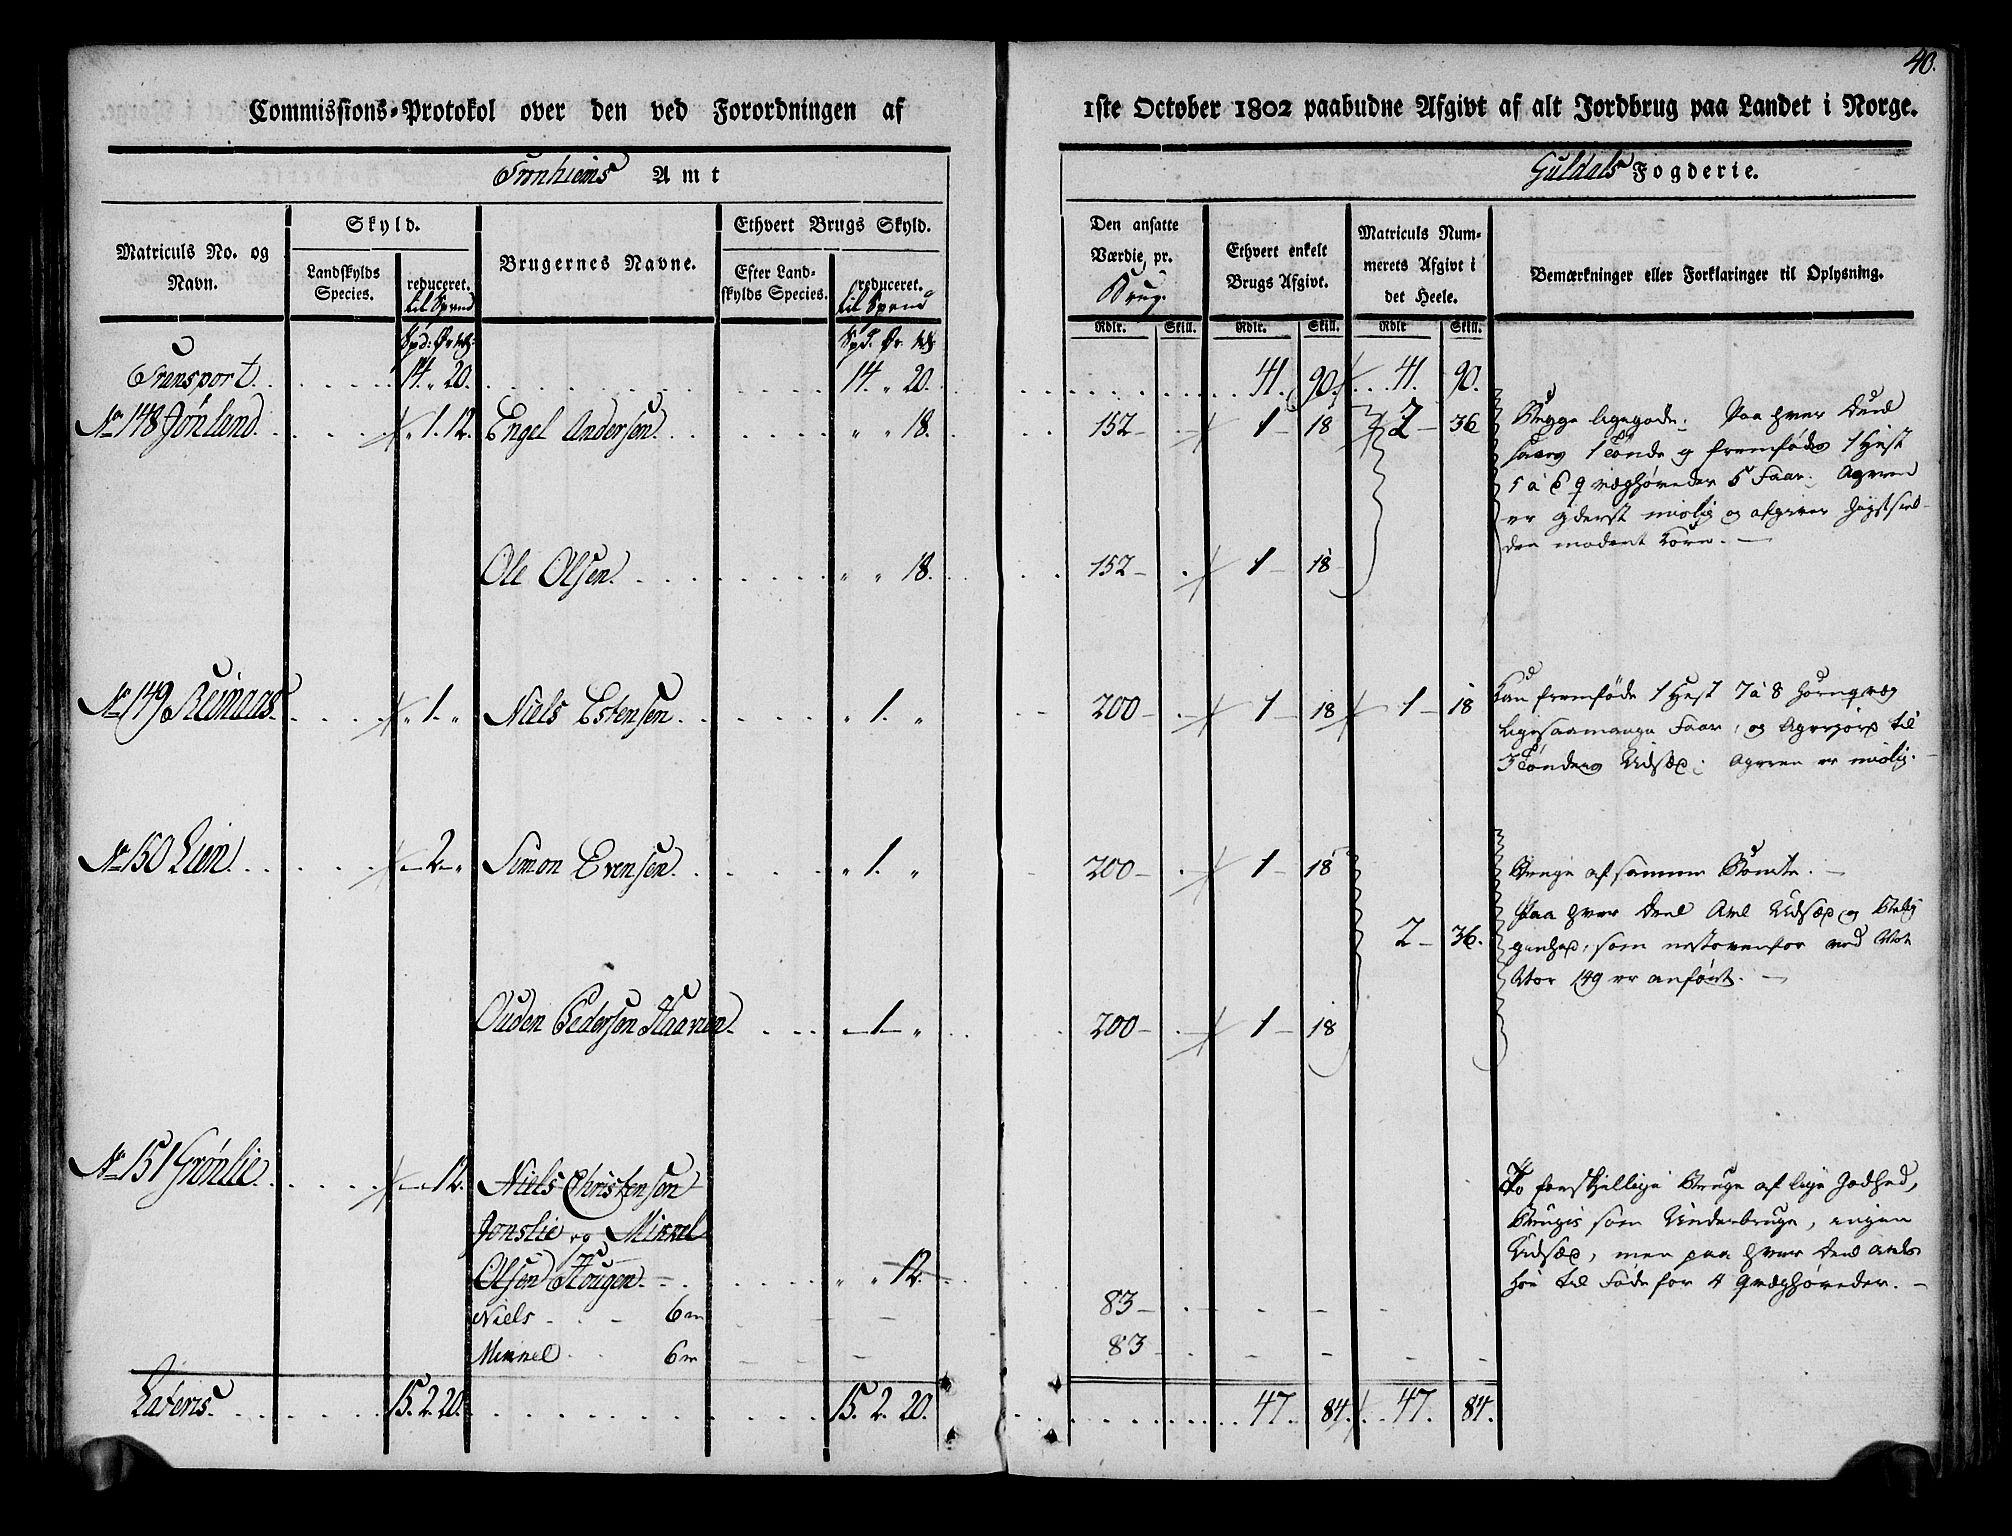 40.
Commissions-Protokol over den ved Forordningen af
1ste October 1802 paabudne Afgivt af alt Jordbrug paa Landet i Norge.
Tronhiems Amt
Guldals Fogderie.
Matriculs No. og Navn.
Skyld.
Landskylds Species.
reduceret. til Spand
Brugernes Navne.
Ethvert Brugs Skyld.
Efter Landskylds Species.
reduceret. til Spand
Den ansatte Værdie, pr. Brug.
Ethvert enkelt Brugs Afgivt.
Matriculs Nummerets Afgivt i det Heele.
Bemærkninger eller Forklaringer til Oplysning.
Rdlr. Skill. Rdlr. Skill. Rdlr Skill.
Transport. 14. „ 20. 14 „ 20. 41. 90. 41. 90.
No 148 Jønland. „ 1. 12. Engel Andersen. „ „ 18. 152 1 18 2 36
Brugge ligegode. Paa hver Deel
saaes 1 Tønde og fremfødes 1 Hest
5 à 6 Qvæghøveder 5 Faar. Ageren
er yderst mislig og afgiver høystsiel-
den modent Korn.
Ole Olsen. „ „ 18. 152 1 18
No 149 Reinaas. „ 1. „ Niels Estensen. „ 1. „ 200 1 18 1 18
Kan fremføde 1 Hest 7 à 8 Hornqvæg
ligesaamange Faar, og Agerjord til
3 Tønders Udsæd; Ageren er mislig.
No 150 Lien. 2 „ Simon Evensen. „ 1. „ 200 1 18
Bruge af samme Bonite.
2 36.
Paa hver Deel Avl Udsæd og
som nestovenfor ved
Nor 149 er anført.
Ouden Pedersen Haaven. 1 „ 200 1 18
No 151 Grønlie. 12. Niels Christensen
Jonslie og Mikkel
Olsen Hougen. „ „ 12.
To forskjellige Bruge af lige Godhed,
Bruges som Underbruge, ingen
Udsæd, men paa hver Deel avles
Høe til Føde for 4 Qvæghøveder.
Niels 6 83
Mikkel 6 83
Lateris. 15. 2. 20. 15. 2. 20. 47. 84. 47. 84.